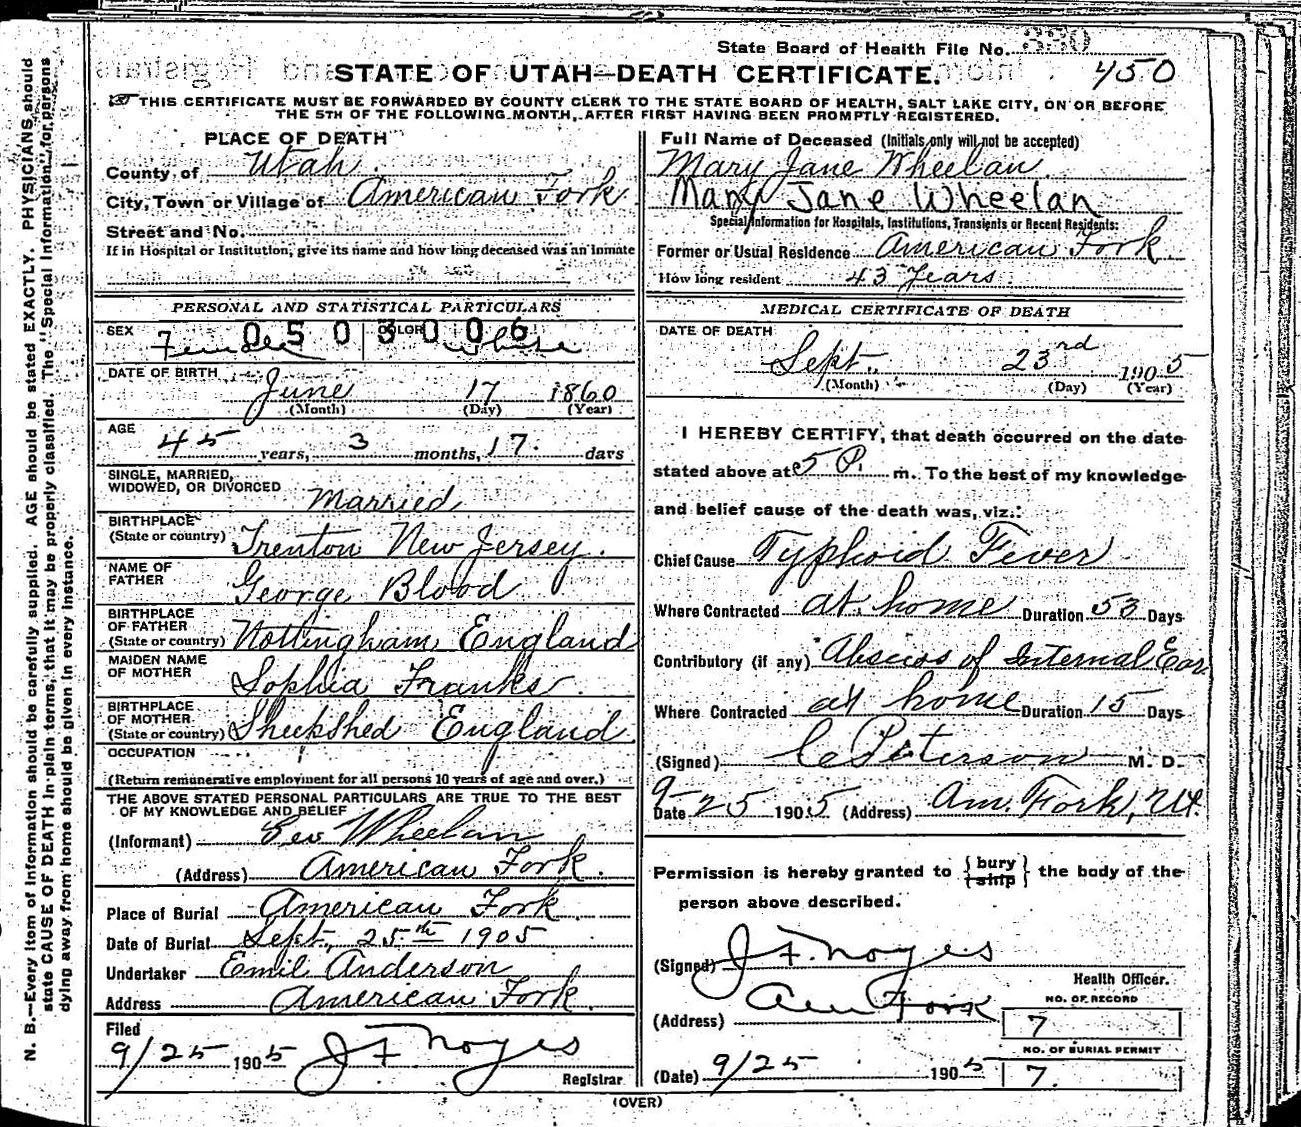 State Board of Health File No. 330
450
STATE OF UTAH—DEATH CERTIFICATE.
THIS CERTIFICATE MUST BE FORWARDED BY COUNTY CLERK TO THE STATE BOARD OF HEALTH, SALT LAKE CITY, ON OR BEFORE
THE 5TH OF THE FOLLOWING MONTH, AFTER FIRST HAVING BEEN PROMPTLY REGISTERED.
PLACE OF DEATH
County of Utah
City, Town or Village of American Fork
Street and No.
If in Hospital or Institution, give its name and how long deceased was an inmate
PERSONAL AND STATISTICAL PARTICULARS
0503006
SEX Female COLOR White
DATE OF BIRTH
June 17 1860
(Month) (Day) (Year)
AGE
45 years, 3 months, 17. days
SINGLE, MARRIED,
WIDOWED, OR DIVORCED Married
BIRTHPLACE
(State or country) Trenton New Jersey.
NAME OF
FATHER George Blood
BIRTHPLACE
OF FATHER
(State or country) Nottingham, England
MAIDEN NAME
OF MOTHER Sophia Franks.
BIRTHPLACE
OF MOTHER
(State or country) Sheekshed England
OCCUPATION
(Return remunerative employment for all persons 10 years of age and over.)
THE ABOVE STATED PERSONAL PARTICULARS ARE TRUE TO THE BEST
OF MY KNOWLEDGE AND BELIEF
(Informant) Geo Wheelan
(Address) American Fork.
Place of Burial American Fork.
Date of Burial Sept. 25th 1905
Undertaker Emil Anderson
Address American Fork.
Filed
9/25 1905 J F Noyes
Registrar
Full Name of Deceased (Initials only will not be accepted)
Mary Jane Wheelan
Mary Jane Wheelan
Special Information for Hospitals, Institutions, Transients or Recent Residents:
Former or Usual Residence American Fork.
How long resident 43 Years.
MEDICAL CERTIFICATE OF DEATH
DATE OF DEATH
Sept. 23rd 1905
(Month) (Day) (Year)
I HEREBY CERTIFY, that death occurred on the date
stated above at 5 P. m. To the best of my knowledge
and belief cause of the death was, viz.:
Chief Cause Typhoid Fever
Where Contracted at home Duration 53 Days
Contributory (if any) Abscess of Internal Ear
Where Contracted at home Duration 15 Days
(Signed) C Peterson M. D.
Date 9-25 1905 (Address) Am. Fork, Ut.
Permission is hereby granted to {bury ship} the body of the
person above described.
(Signed) J F. Noyes
Health Officer.
(Address) Am Fork
NO. OF RECORD
7
NO. OF BURIAL PERMIT
(Date) 9/25 1905 7.
(OVER)
N. B.—Every item of information should be carefully supplied. AGE should be stated EXACTLY. PHYSICIANS should
state CAUSE OF DEATH in plain terms, that it may be properly classified. The "Special Information" for persons
dying away from home should be given in every instance.